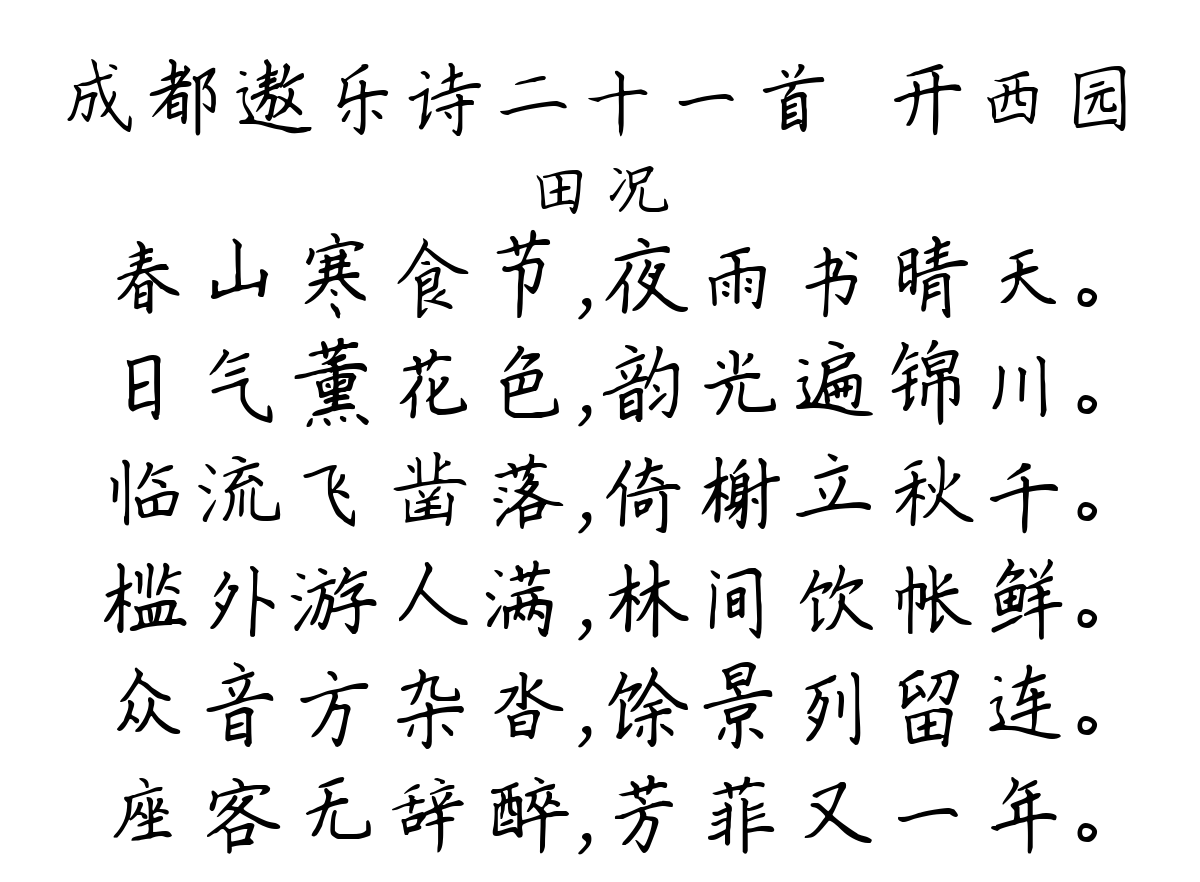 成都遨乐诗二十一首 开西园
田况
春山寒食节,夜雨书晴天。
日气薰花色,韵光遍锦川。
临流飞凿落,倚榭立秋千。
槛外游人满,林间饮帐鲜。
众音方杂沓,馀景列留连。
座客无辞醉,芳菲又一年。